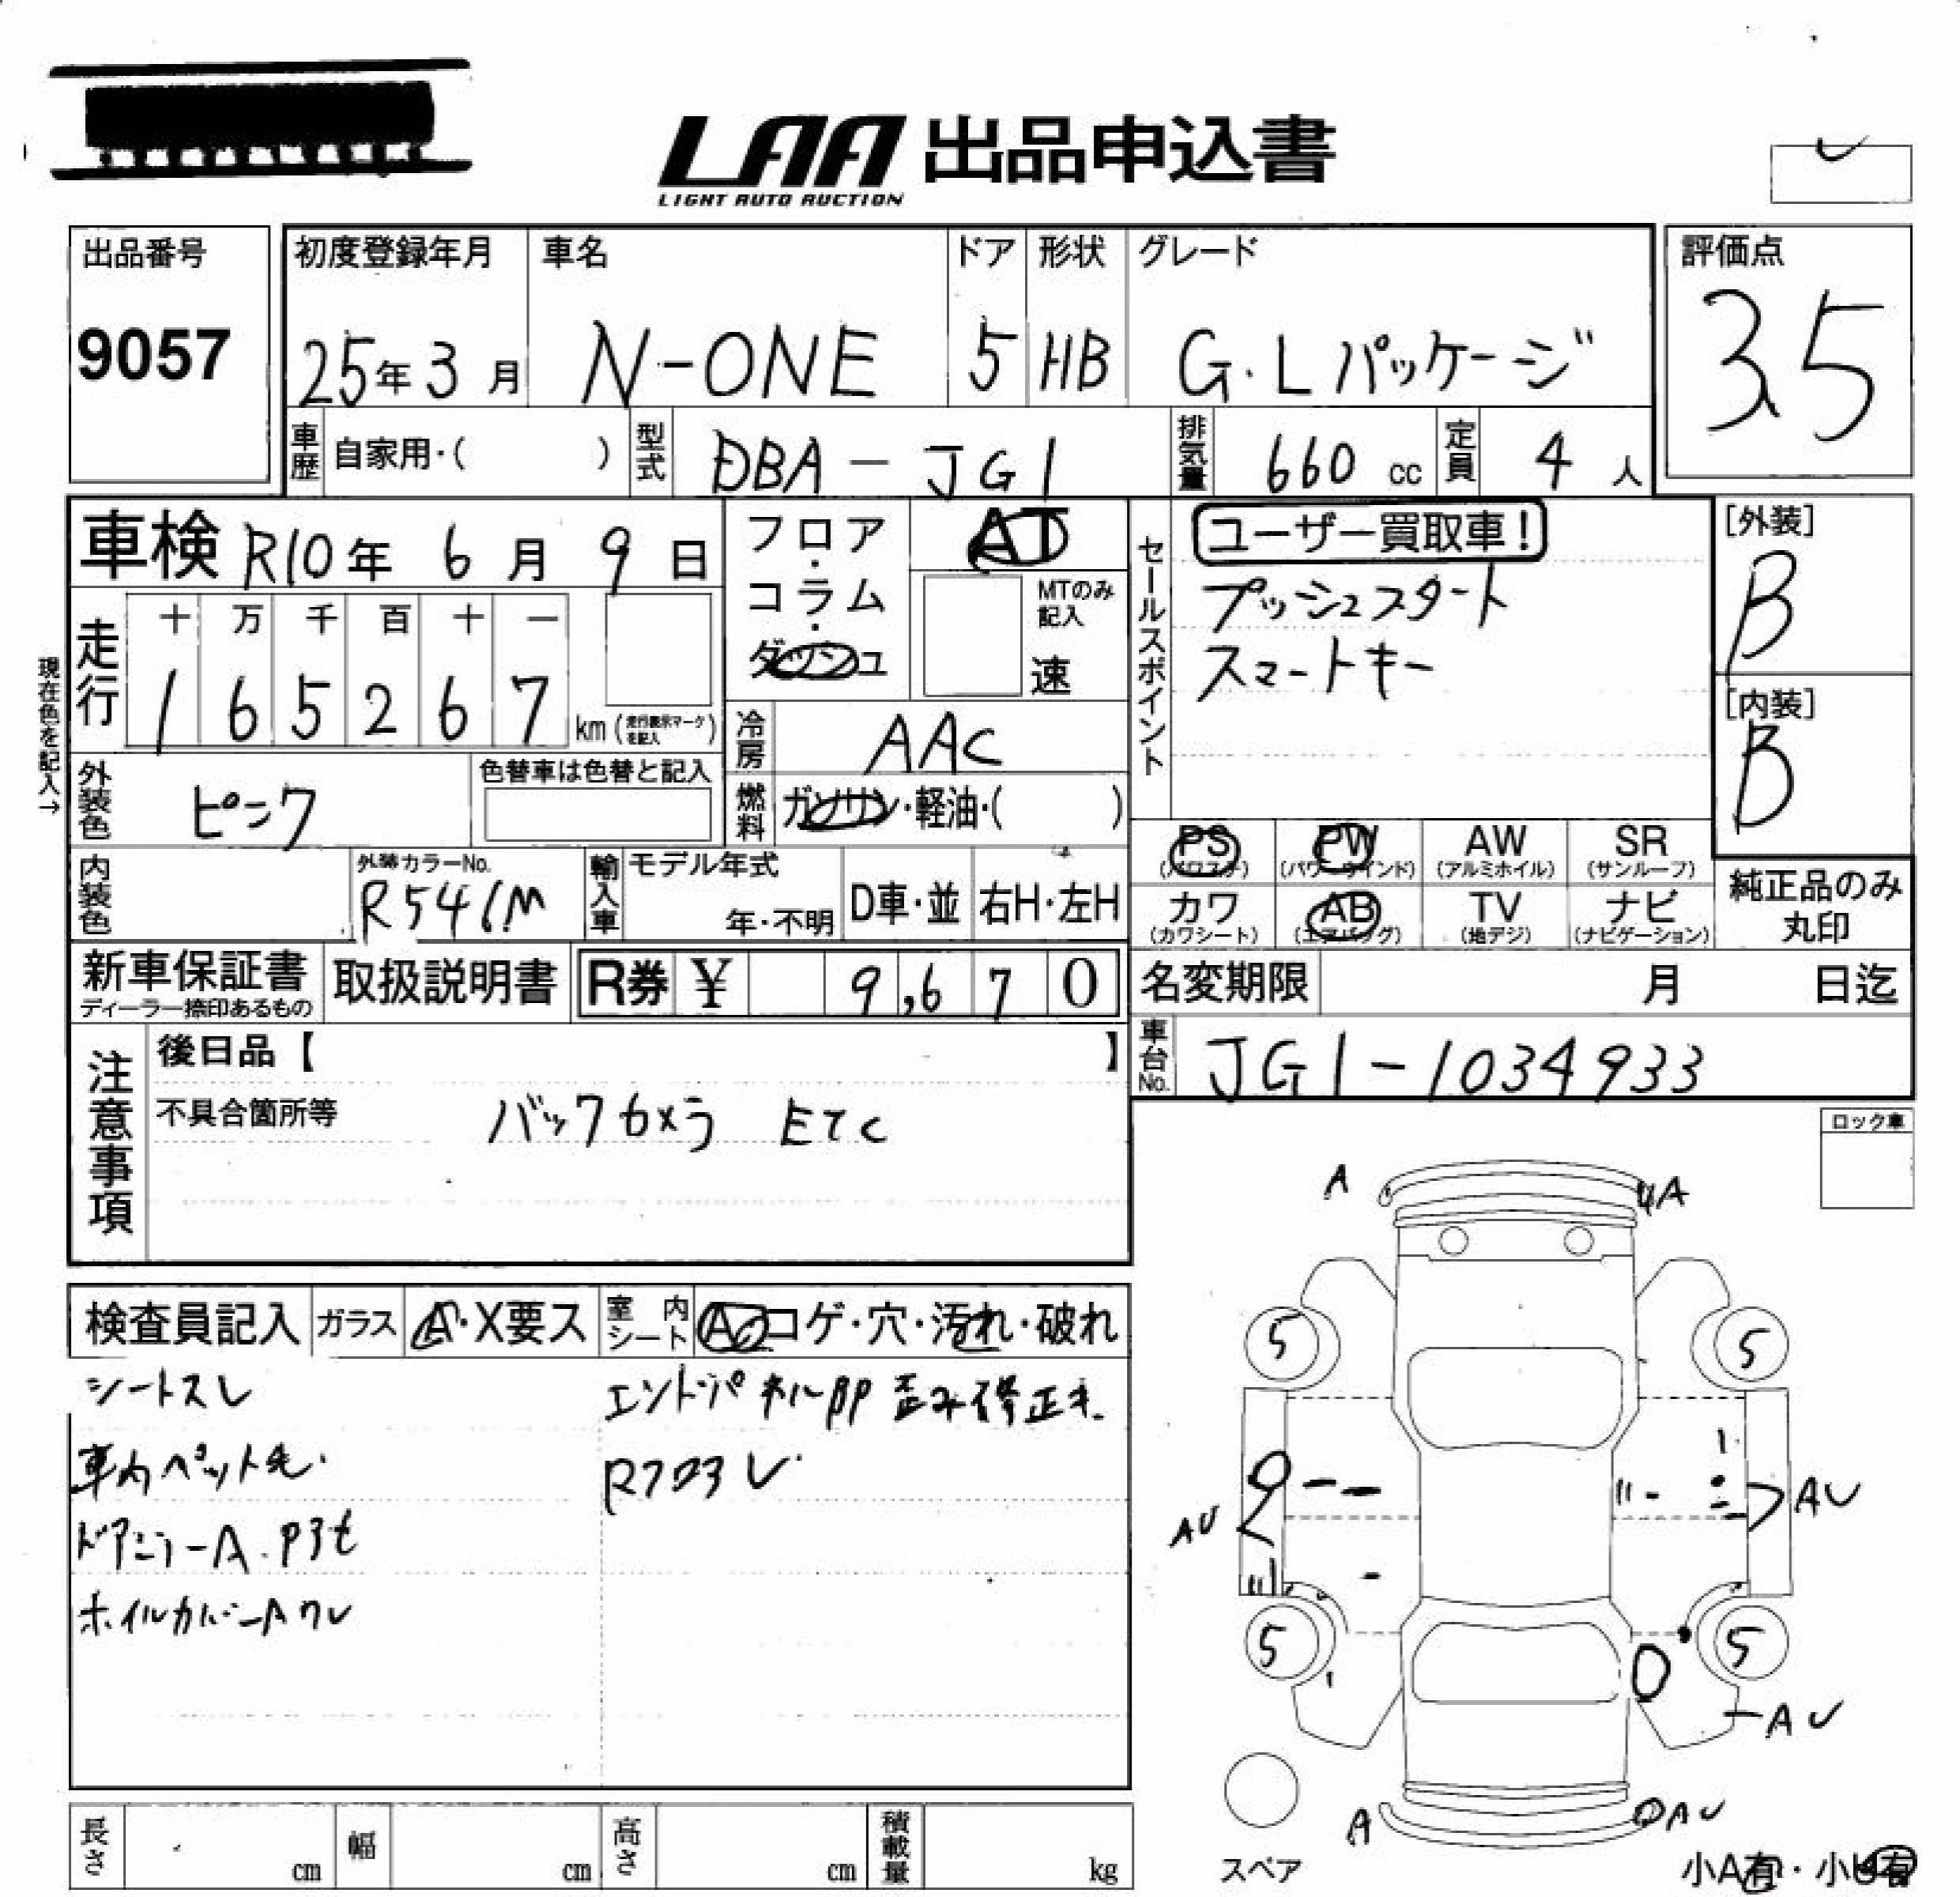 LAA 出品申込書
LIGHT AUTO AUCTION
出品番号
9057
初度登録年月
25年 3月
車名
N-ONE
ドア
5
形状
HB
グレード
G・Lパッケージ
評価点
3.5
車歴 自家用・( )
型式 DBA-JG1
排気量 660 cc
定員 4 人
車検 R10年 6月 9日
現在色を記入→
走行 十 万 千 百 十 一
1 6 5 2 6 7 km (走行表示マークを記入)
フロア・コラム・ダッシュ
AT
MTのみ記入
速
冷房 AAC
燃料 ガソリン・軽油・( )
外装色 ピンク
色替車は色替と記入
内装色
外装カラーNo.
R546M
輸入車
モデル年式
年・不明
D車・並
右H・左H
セールスポイント
ユーザー買取車!
プッシュスタート
スマートキー
[外装]
B
[内装]
B
PS (パワステ)
PW (パワーウインド)
AW (アルミホイル)
SR (サンルーフ)
カワ (カワシート)
AB (エアバッグ)
TV (地デジ)
ナビ (ナビゲーション)
純正品のみ丸印
新車保証書
ディーラー捺印あるもの
取扱説明書
R券 ¥ 9,670
名変期限 月 日迄
車台No. JG1-1034933
注意事項
後日品【 】
不具合箇所等 バックカメラ ETC
ロック車
検査員記入
ガラス A・X要ス
室内シート A・コゲ・穴・汚れ・破れ
シートスレ
車内ペット毛
ドアミラーA
ホイルカバーAワレ
エンドパネル部 歪み修正キ
A
A
5
5
AU
AU
5
5
AU
A
AU
スペア
小A有・小U有
長さ cm
幅 cm
高さ cm
積載量 kg